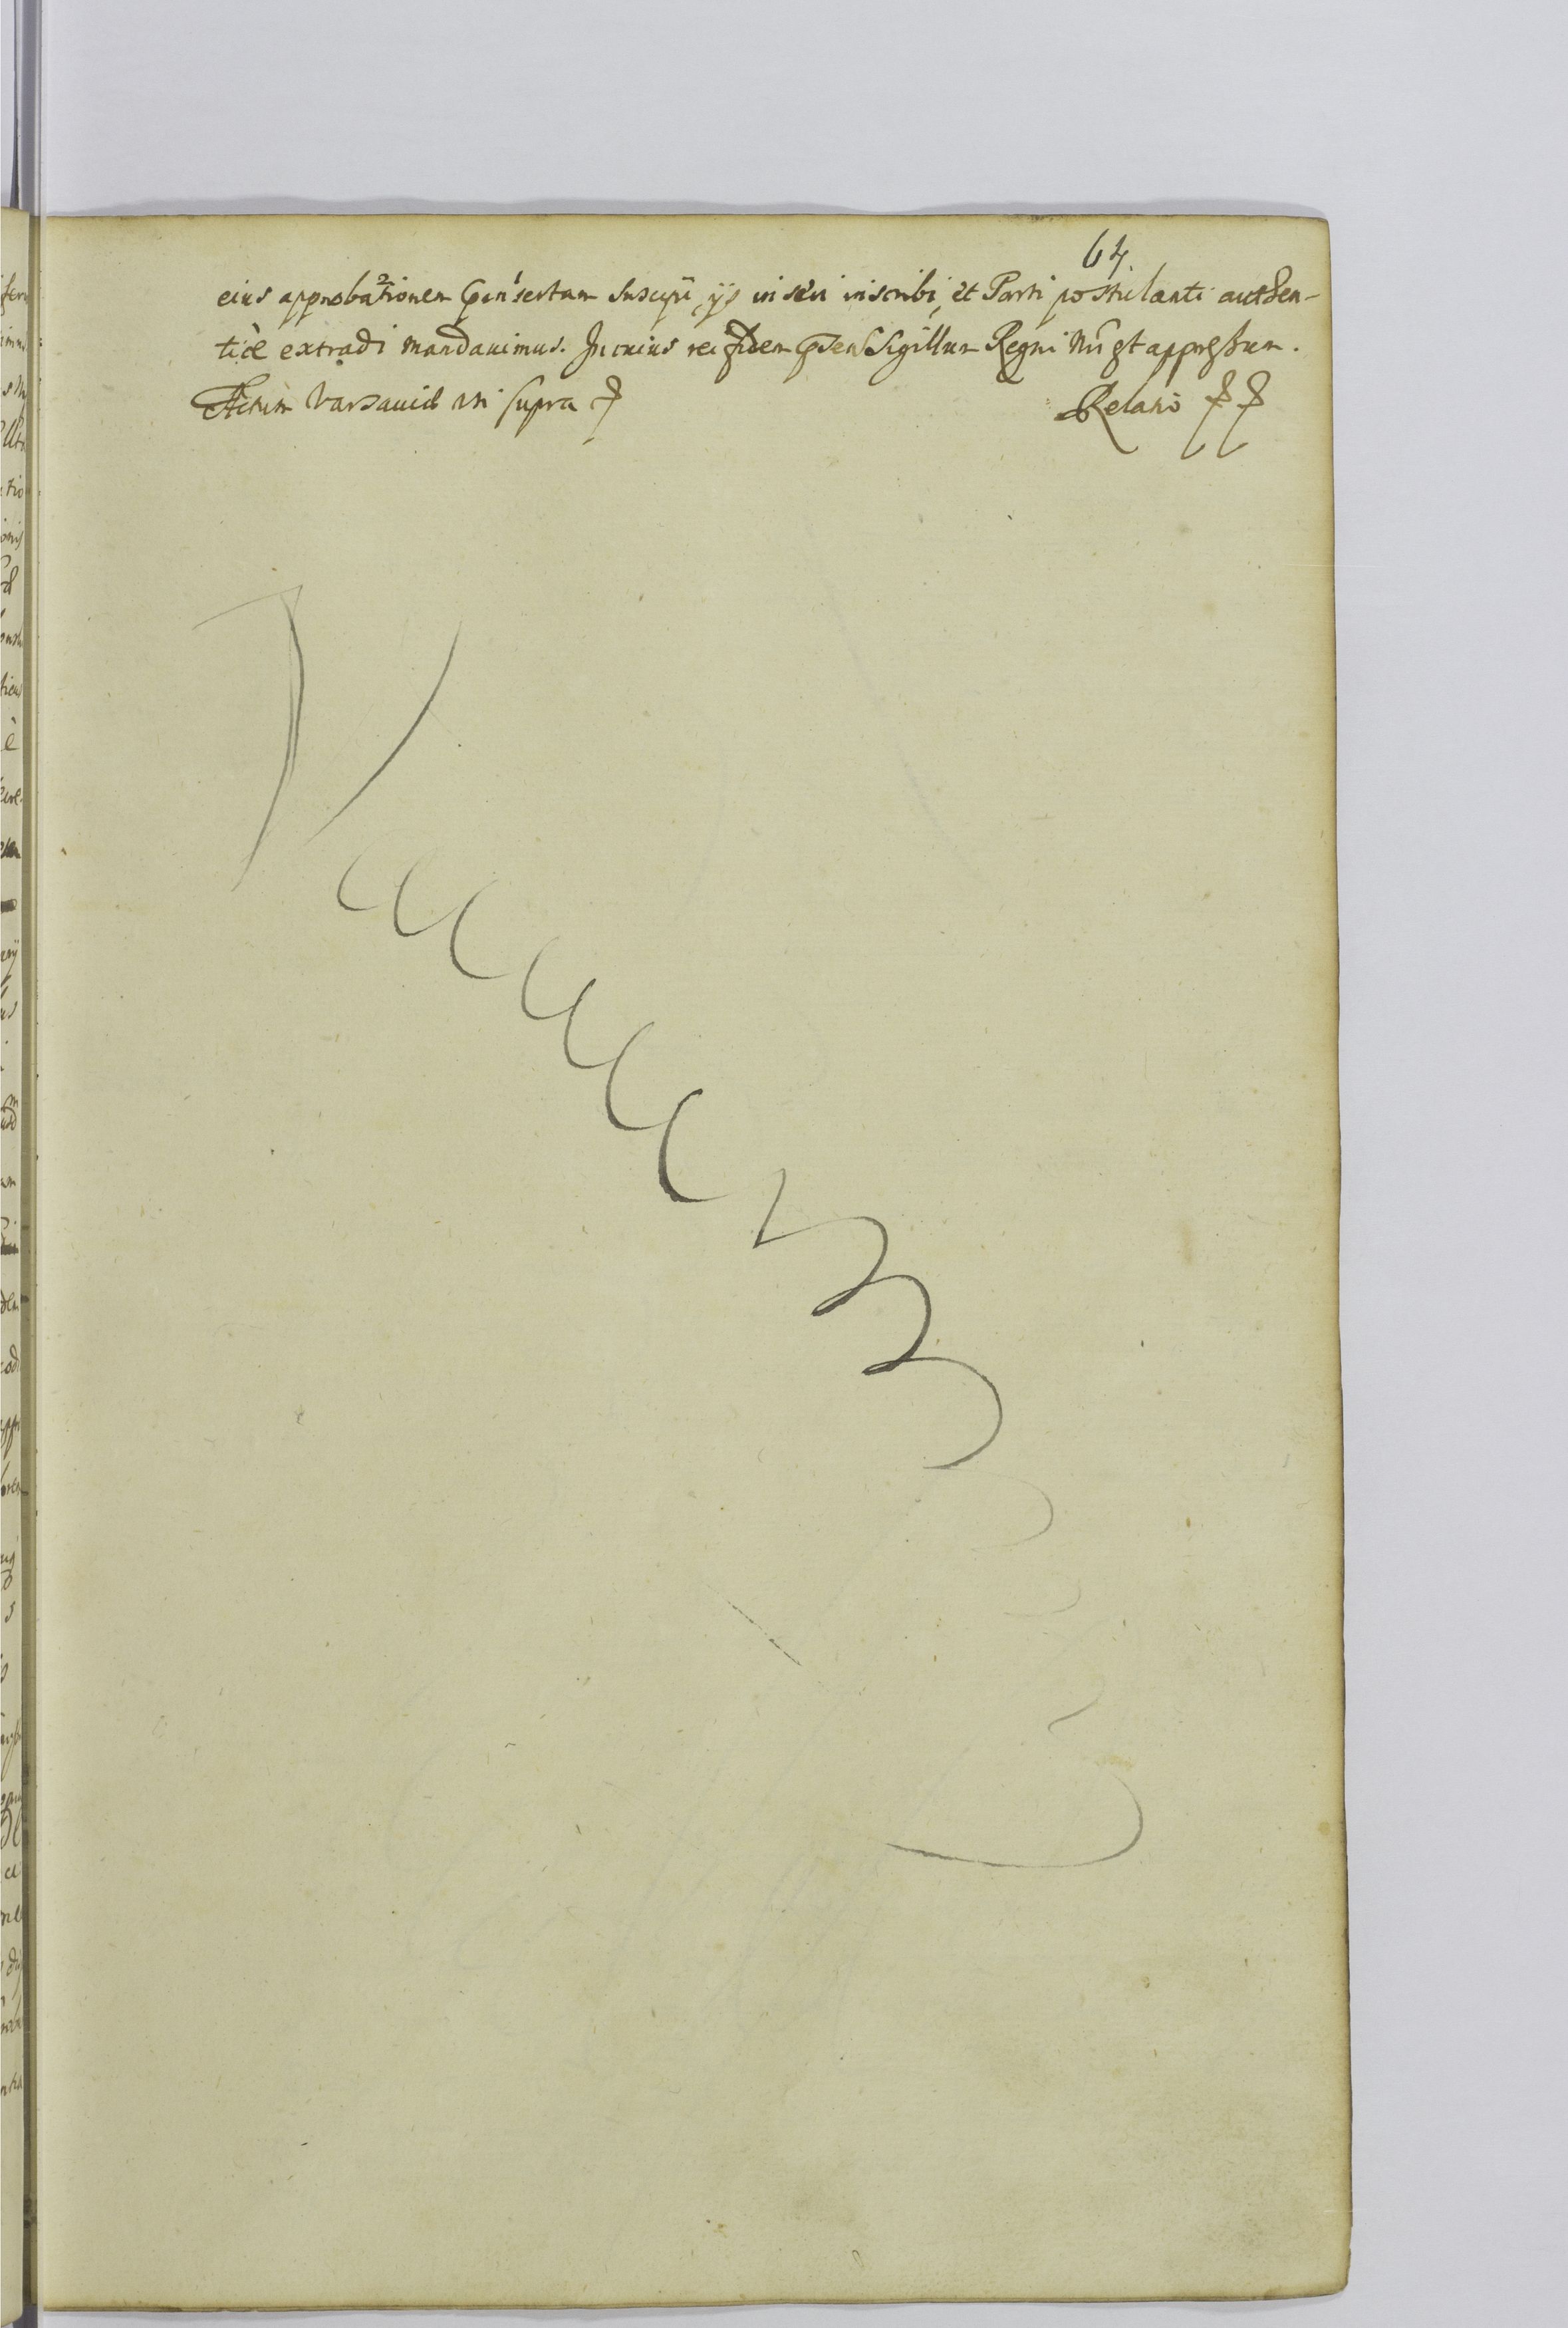 64.
eius approbationem insertam suscipi, ijs inseri inscribi, et Parti postulanti authen-
ticè extradi mandauimus. In cuius rei fidem pñs Sigillum Regni Nrĩ est appressum.
Actum Varsauiæ uti supra
Relatio